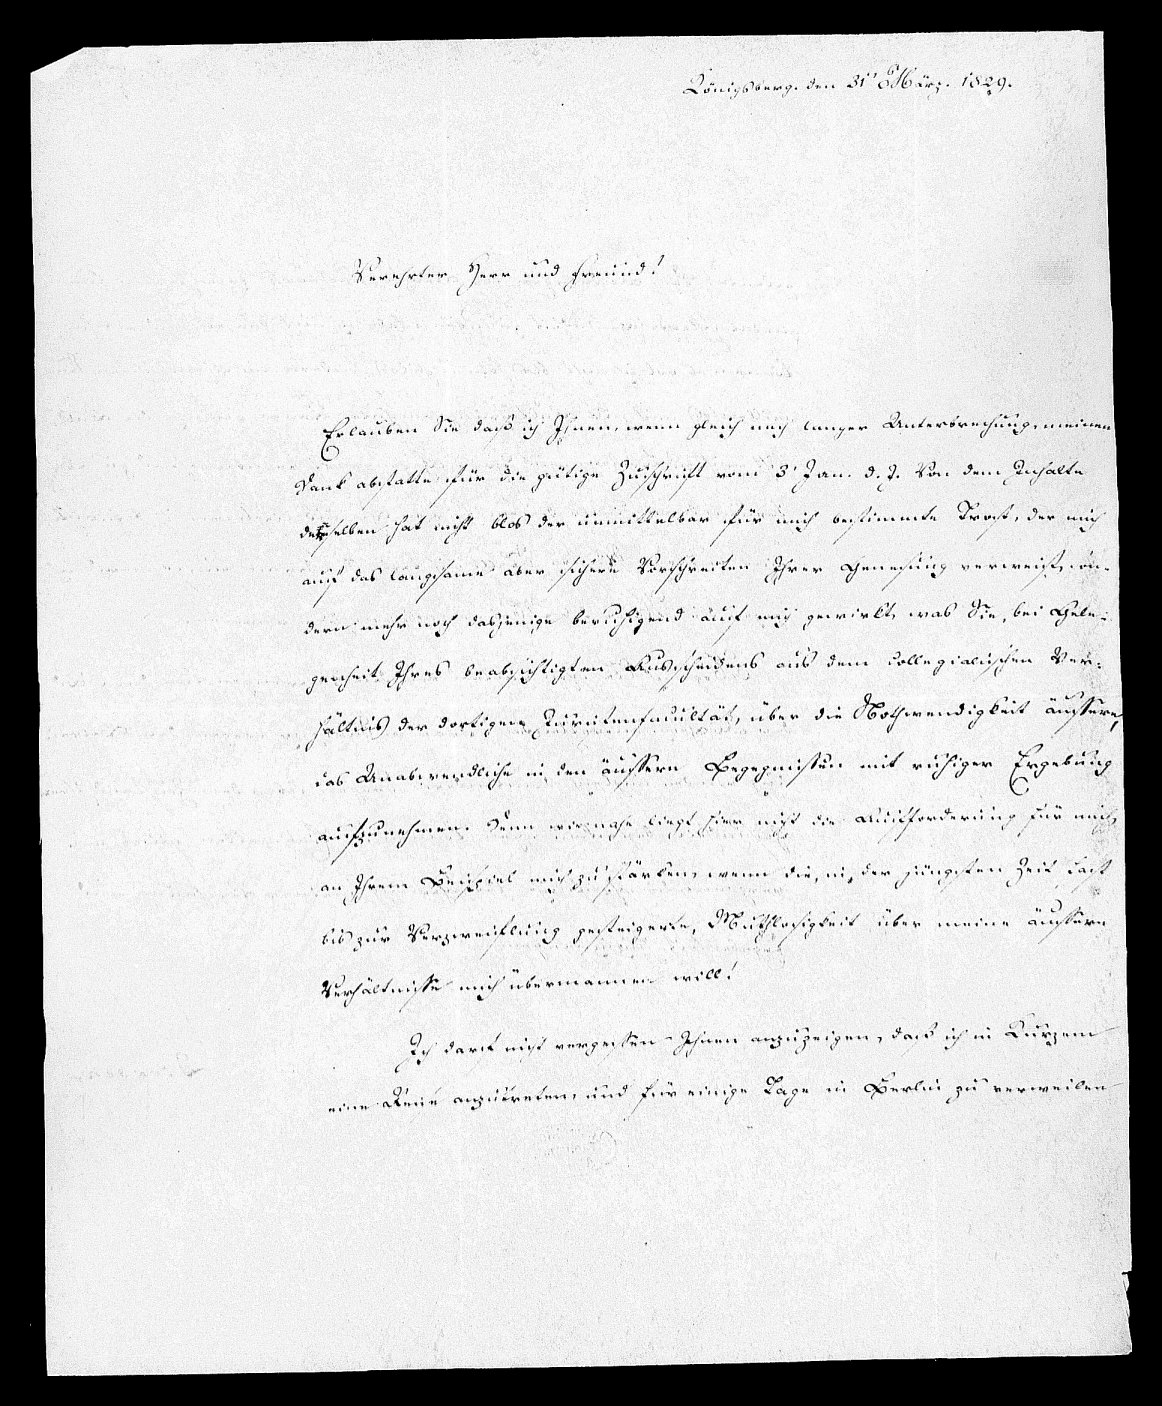 Königsberg. den 31' März. 1829.
Verehrter Herr und Freund!
Erlauben Sie daß ich Ihnen, wenn gleich nach langer Unterbrechung, meinen
Dank abstatte für die gütige Zuschrift vom 3' Jan. d. J. Von dem Inhalte
derselben hat nicht blos der unmittelbar für mich bestimmte Trost, der mich
auf das langsame aber sichere Vorschreiten Ihrer Genesung verweist, son-
dern mehr noch dasjenige beruhigend auf mich gewirkt, was Sie, bei Gele-
genheit Ihres beabsichtigten Ausscheidens aus dem collegialischen Ver-
hältnis der dortigen Juristenfacultät, über die Nothwendigkeit äussern,
das Unabwendliche in den äussern Begegnissen mit ruhiger Ergebung
aufzunehmen. Denn wie nahe liegt hier nicht die Aufforderung für mich,
an Ihrem Beispiel mich zu stärken, wenn die, in der jüngsten Zeit fast
bis zur Verzweiflung gesteigerte, Muthlosigkeit über meine äussern
Verhältnisse mich übermannen will!
Ich darf nicht vergessen Ihnen anzuzeigen, daß ich in Kurzem
eine Reise anzutreten, und für einige Tage in Berlin zu verweilen